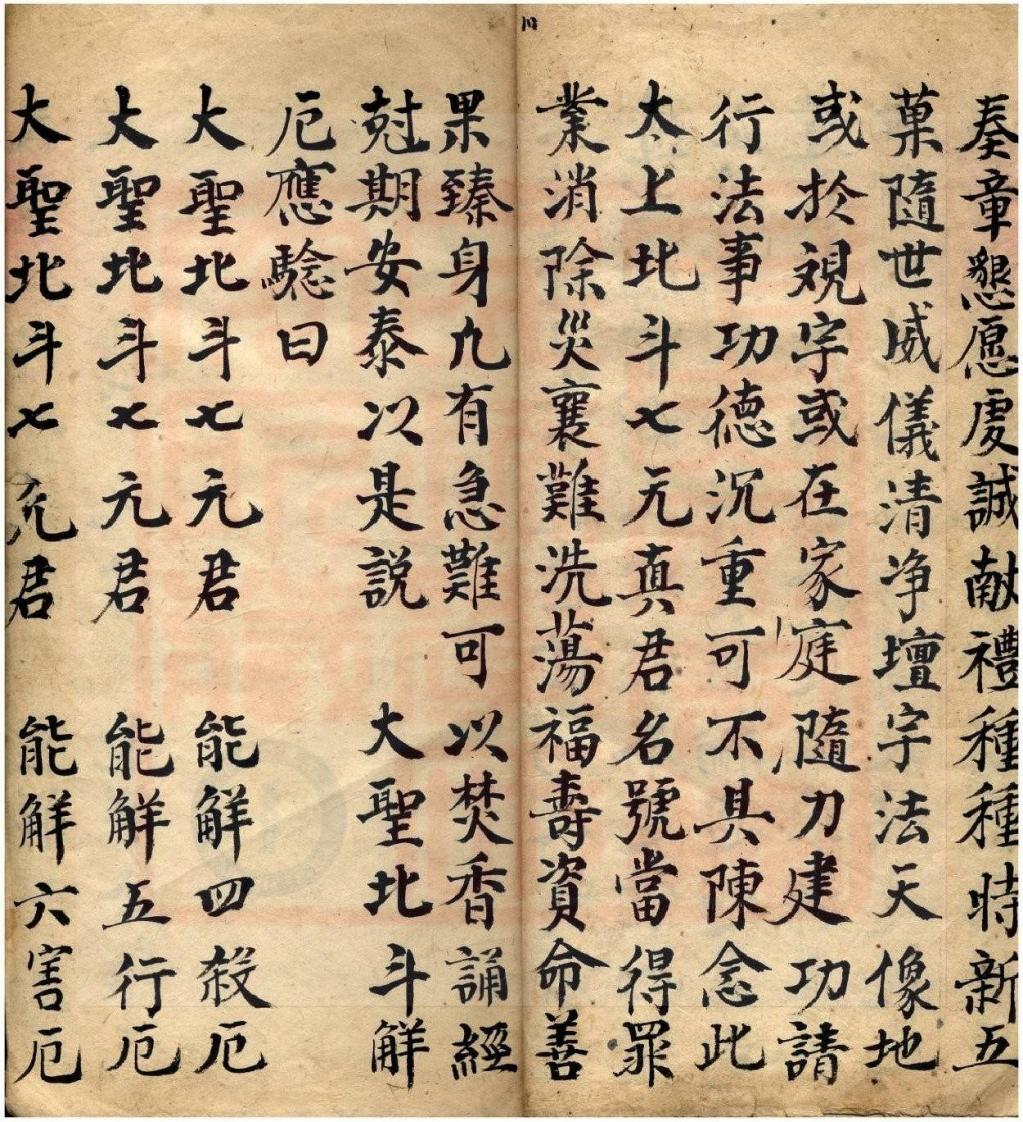 奏章懇愿虔誠献禮種種時新五
菓隨世威儀清净壇宇法天像地
或於觀宇或在家庭隨力建功請
行法事功德沉重可不具陳念此
太上北斗七元真君名號當得罪
業消除災襄難洗蕩福壽資命善
果臻身凢有急難可以焚香誦經
尅期安泰以是説 大聖北斗解
厄應騐曰
大聖北斗七元君 能解四殺厄
大聖北斗七元君 能解五行厄
大聖北斗七元君 能解六害厄